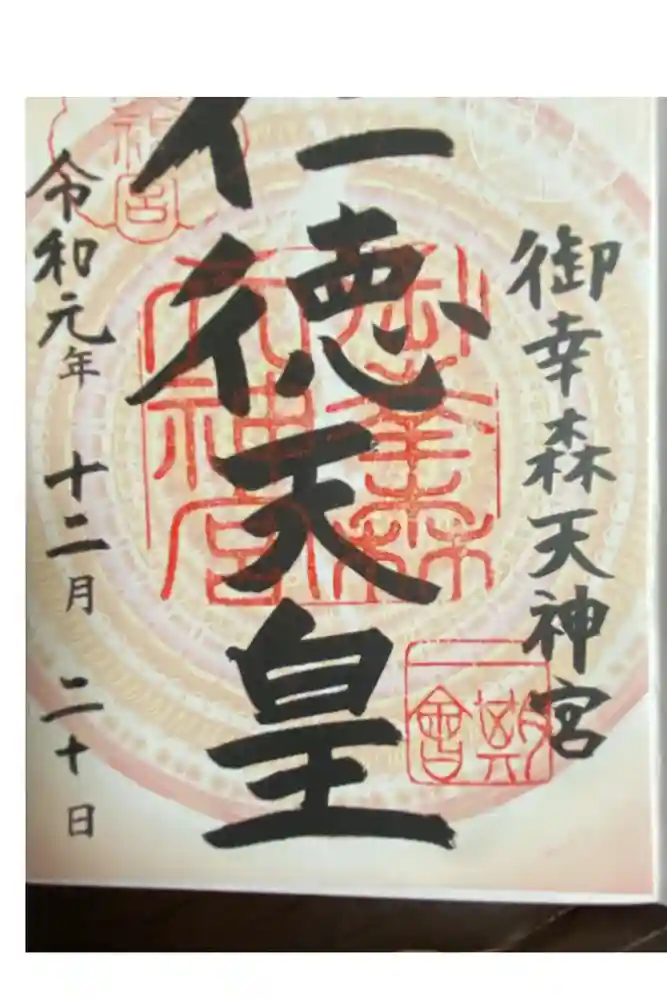 御幸森天神宮
仁徳天皇
令和元年 十二月 二十日
御幸森天神宮